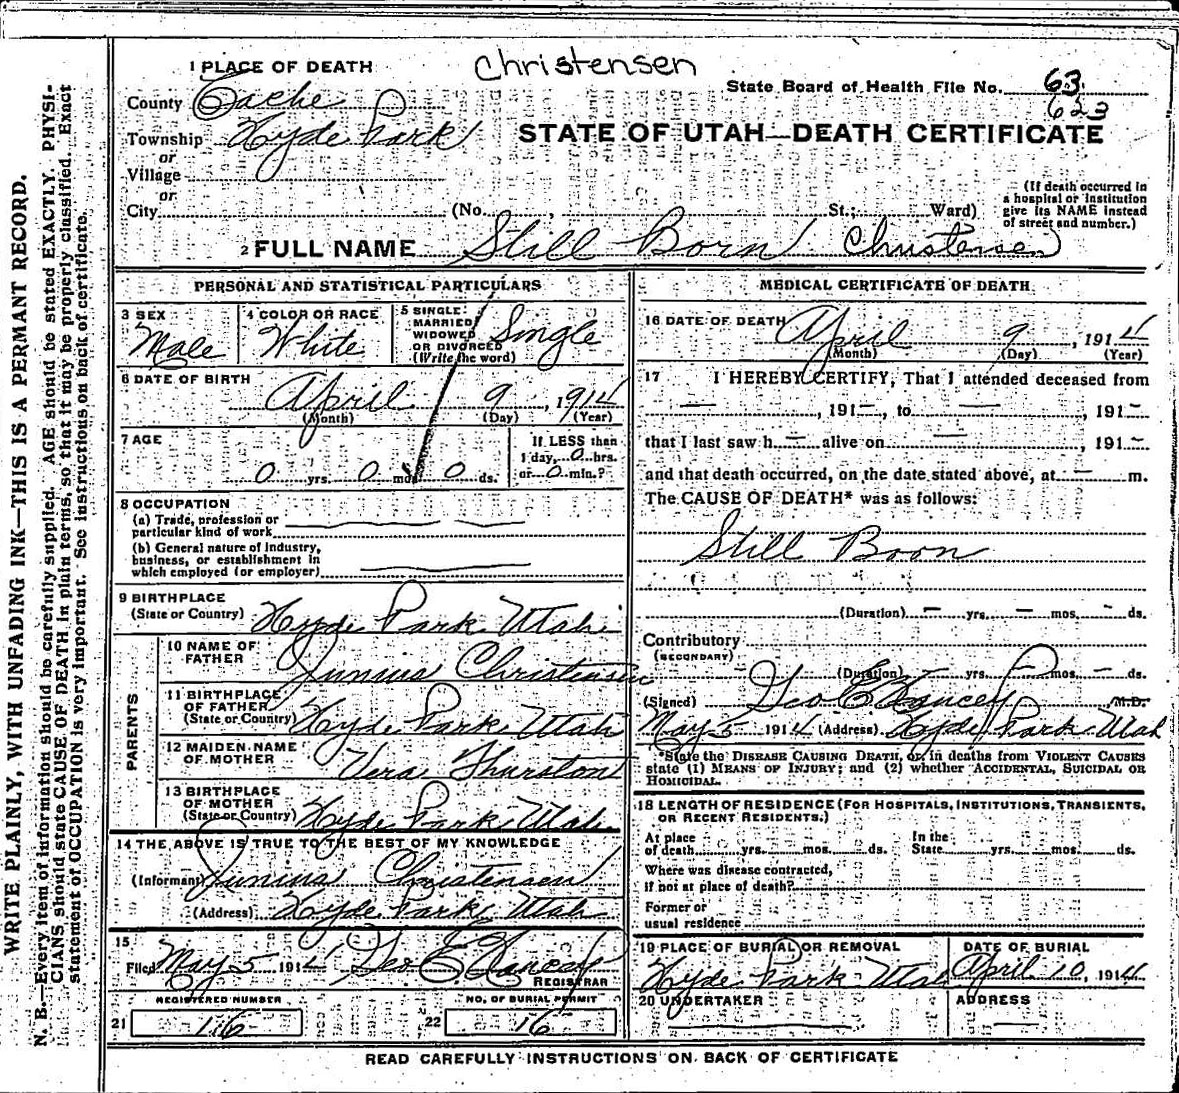 Christensen
1 PLACE OF DEATH
State Board of Health File No. 63
623
County Cache
Township Hyde Park
STATE OF UTAH—DEATH CERTIFICATE
or
Village
or
City (No. , St.; Ward)
(If death occurred in
a hospital or institution
give its NAME instead
of street and number.)
2 FULL NAME Still Born Christensen
PERSONAL AND STATISTICAL PARTICULARS
3 SEX
Male
4 COLOR OR RACE
White
5 SINGLE
MARRIED
WIDOWED
OR DIVORCED
(Write the word)
Single
6 DATE OF BIRTH
April 9, 1914
(Month) (Day) (Year)
7 AGE
0 yrs. 0 mos. 0 ds.
If LESS than
1 day, 0 hrs.
or 0 min.?
8 OCCUPATION
(a) Trade, profession or
particular kind of work
(b) General nature of Industry,
business, or establishment in
which employed (or employer)
9 BIRTHPLACE
(State or Country) Hyde Park Utah
PARENTS
10 NAME OF
FATHER Junius Christensen
11 BIRTHPLACE
OF FATHER
(State or Country) Hyde Park Utah
12 MAIDEN NAME
OF MOTHER Vera Thurston
13 BIRTHPLACE
OF MOTHER
(State or Country) Hyde Park Utah
14 THE ABOVE IS TRUE TO THE BEST OF MY KNOWLEDGE
(Informant) Junius Christensen
(Address) Hyde Park, Utah
15
Filed May 5 1914 Geo C Hancey
REGISTRAR
REGISTERED NUMBER
21 16
NO. OF BURIAL PERMIT
22 16
MEDICAL CERTIFICATE OF DEATH
16 DATE OF DEATH April 9, 1914
(Month) (Day) (Year)
17 I HEREBY CERTIFY, That I attended deceased from
— , 191—, to — , 191—
that I last saw h — alive on — , 191—
and that death occurred, on the date stated above, at — m.
The CAUSE OF DEATH* was as follows:
Still Boon
(Duration) — yrs. — mos. — ds.
Contributory
(SECONDARY)
(Duration) — yrs. — mos. — ds.
(Signed) Geo C Hancey M.D.
May 5 1914 (Address) Hyde Park Utah
*State the DISEASE CAUSING DEATH, or, in deaths from VIOLENT CAUSES
state (1) MEANS OF INJURY; and (2) whether ACCIDENTAL, SUICIDAL OR
HOMICIDAL.
18 LENGTH OF RESIDENCE (FOR HOSPITALS, INSTITUTIONS, TRANSIENTS,
OR RECENT RESIDENTS.)
At place
of death yrs. mos. ds.
In the
State yrs. mos. ds.
Where was disease contracted,
if not at place of death?
Former or
usual residence
19 PLACE OF BURIAL OR REMOVAL
Hyde Park Utah
DATE OF BURIAL
April 10, 1914
20 UNDERTAKER
ADDRESS
READ CAREFULLY INSTRUCTIONS ON BACK OF CERTIFICATE
WRITE PLAINLY, WITH UNFADING INK—THIS IS A PERMANT RECORD.
N. B.—Every item of information should be carefully supplied. AGE should be stated EXACTLY. PHYSI-
CIANS should state CAUSE OF DEATH in plain terms, so that it may be properly classified. Exact
statement of OCCUPATION is very important. See instructions on back of certificate.